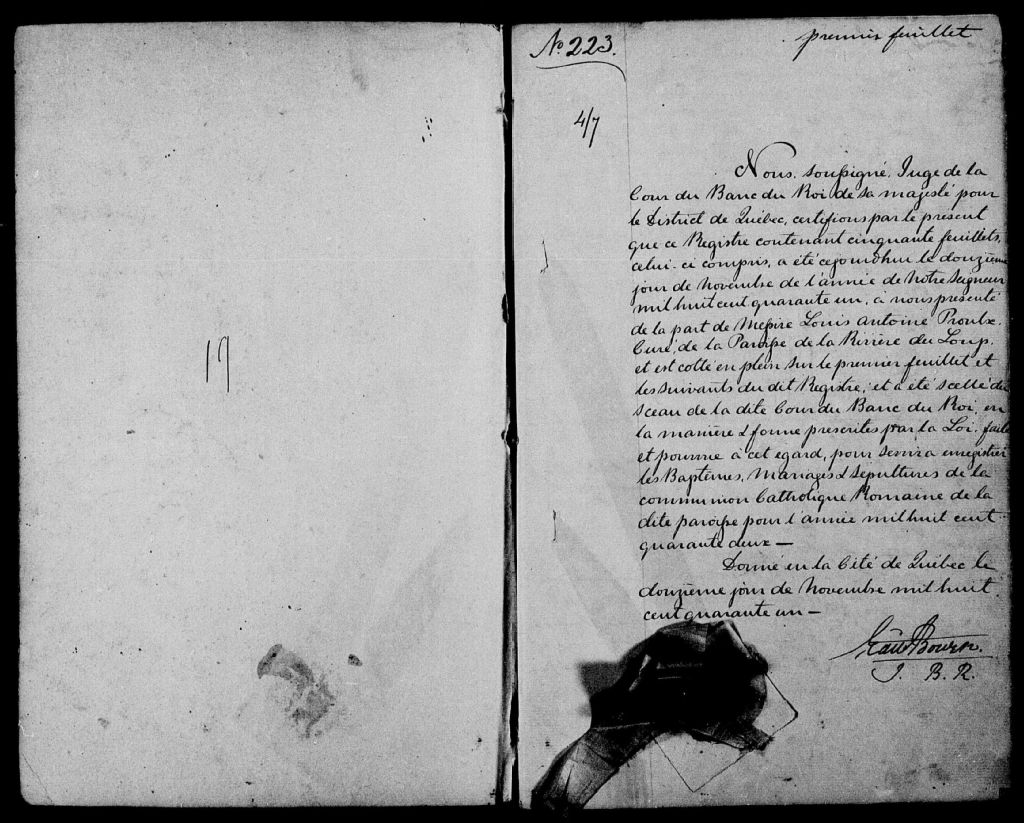 19
Nº 223.
premier feuillet
4/7
Nous, soussigné, Juge de la
Cour du Banc du Roi de sa majesté pour
le District de Québec, certifions par le présent
que ce Registre contenant cinquante feuillets,
celui-ci compris, a été cejourdhui le douzième
jour de Novembre de l'année de Notre Seigneur
mil huit cent quarante un, à nous présenté
de la part de Messire Louis Antoine Proulx.
Curé, de la Paroisse de la Rivière du Loup.
et est cotté en plein sur le premier feuillet et
les suivants du dit Registre, et a été scellé du
sceau de la dite Cour du Banc du Roi, en
la manière & forme prescrites par la Loi, faite
et pourvue à cet egard, pour servir a enregistrer
les Baptêmes, Mariages & Sépultures de la
communion Catholique Romaine de la
dite paroisse pour l'année mil huit cent
quarante deux —
Donné en la Cité de Québec le
douzième jour de Novembre mil huit
cent quarante un —
Edw Bowen.
J. B. R.